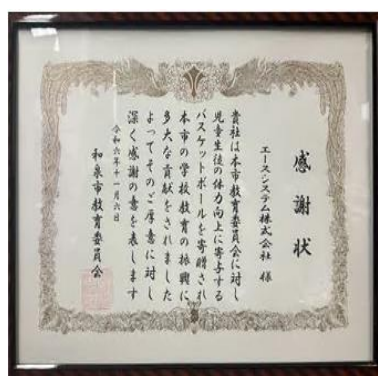 感謝状
エースシステム株式会社 様
貴社は本市教育委員会に対し
児童生徒の体力向上に寄与する
バスケットボールを寄贈され
本市の学校教育の振興に
多大な貢献をされました
よってそのご厚意に対し
深く感謝の意を表します
令和六年十一月六日
和泉市教育委員会